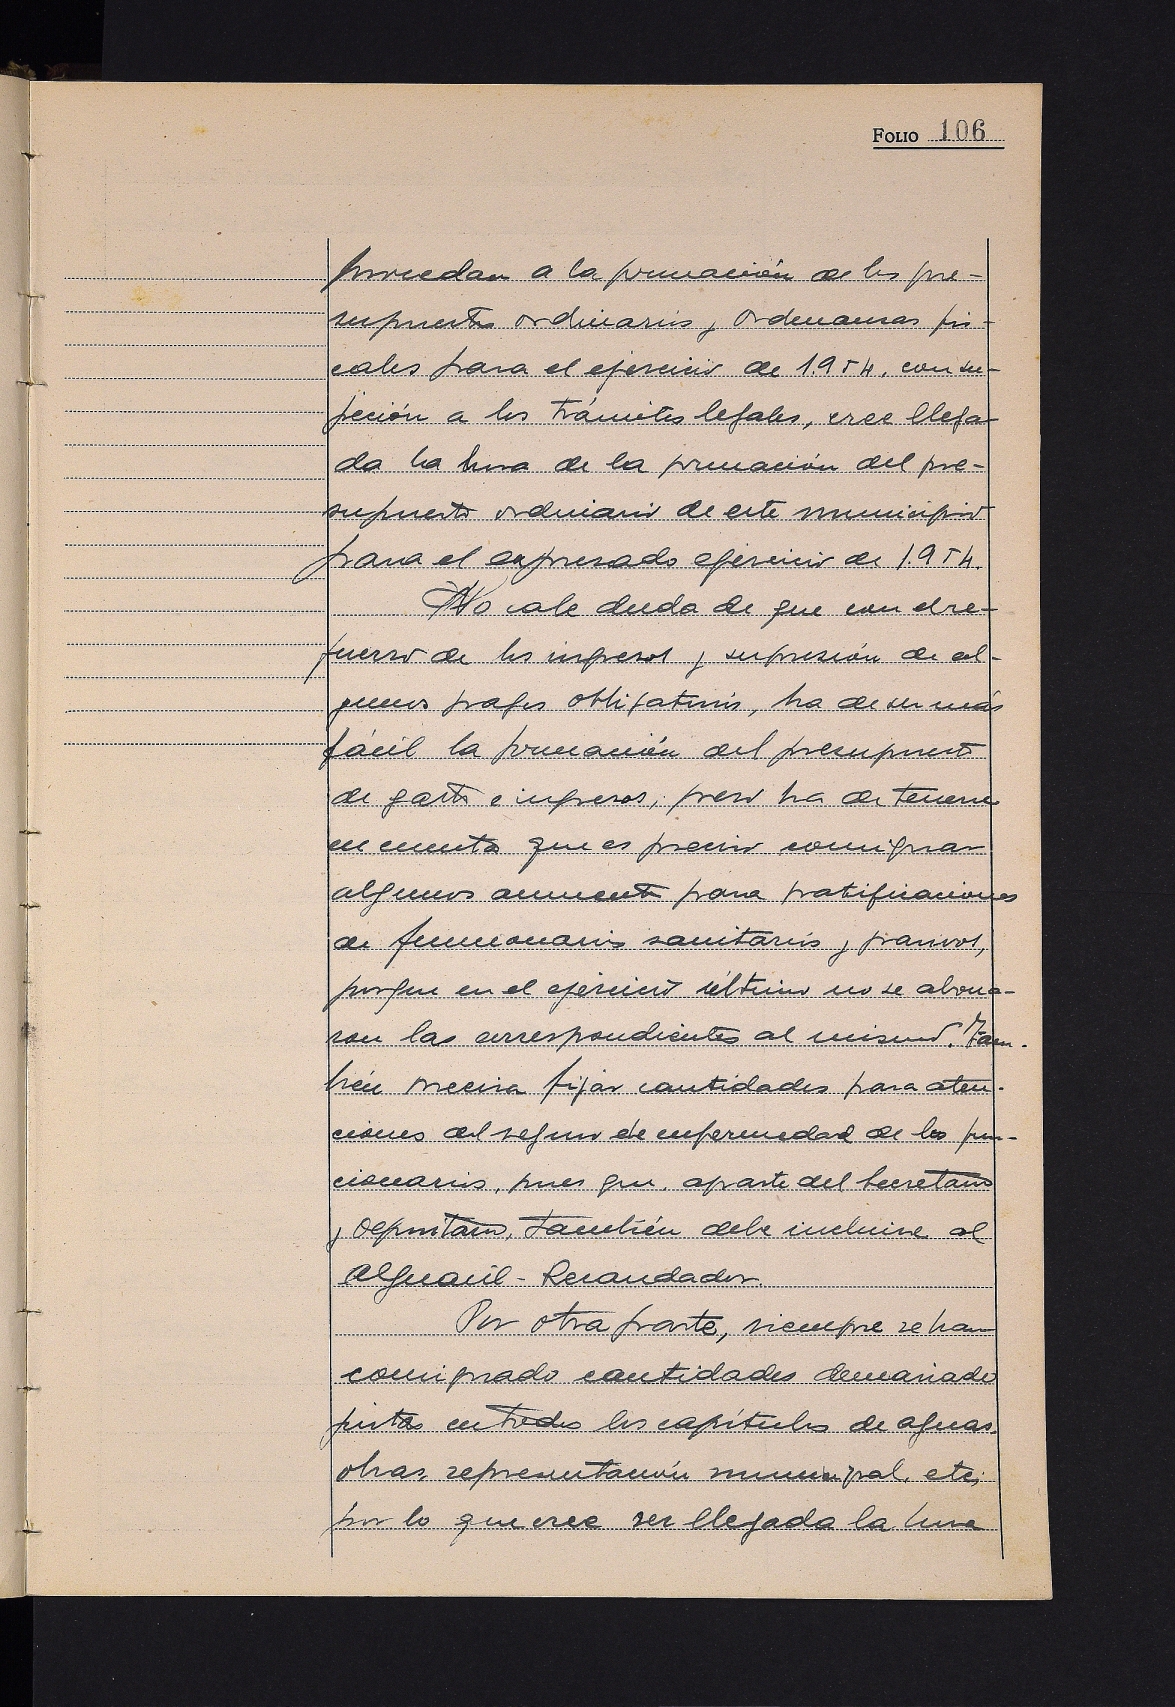 FOLIO 106
procedan a la formación de los pre-
supuestos ordinarios y Ordenanzas fis-
cales para el ejercicio de 1.954, con su-
jeción a los trámites legales, cree llega-
da la hora de la formación del pre-
supuesto ordinario de este municipio
para el expresado ejercicio de 1.954.
No cabe duda de que con el re-
fuerzo de los ingresos y supresión de al-
gunos pagos obligatorios, ha de ser más
fácil la formación del presupuesto
de gastos e ingresos; pero ha de tenerse
en cuenta que es preciso consignar
algunos aumentos para gratificaciones
de funcionarios sanitarios y
porque en el ejercicio último no se abona-
ron las correspondientes al mismo. Tam-
bién precisa fijar cantidades para aten-
ciones del seguro de enfermedad de los fun-
cionarios, pues que, aparte del Secretario
y Depositario, también debe incluirse al
Alguacil-Recaudador.
Por otra parte, siempre se han
consignado cantidades demasiado
justas en todos los capítulos de aguas,
obras, representación municipal, etc;
por lo que cree ser llegada la hora